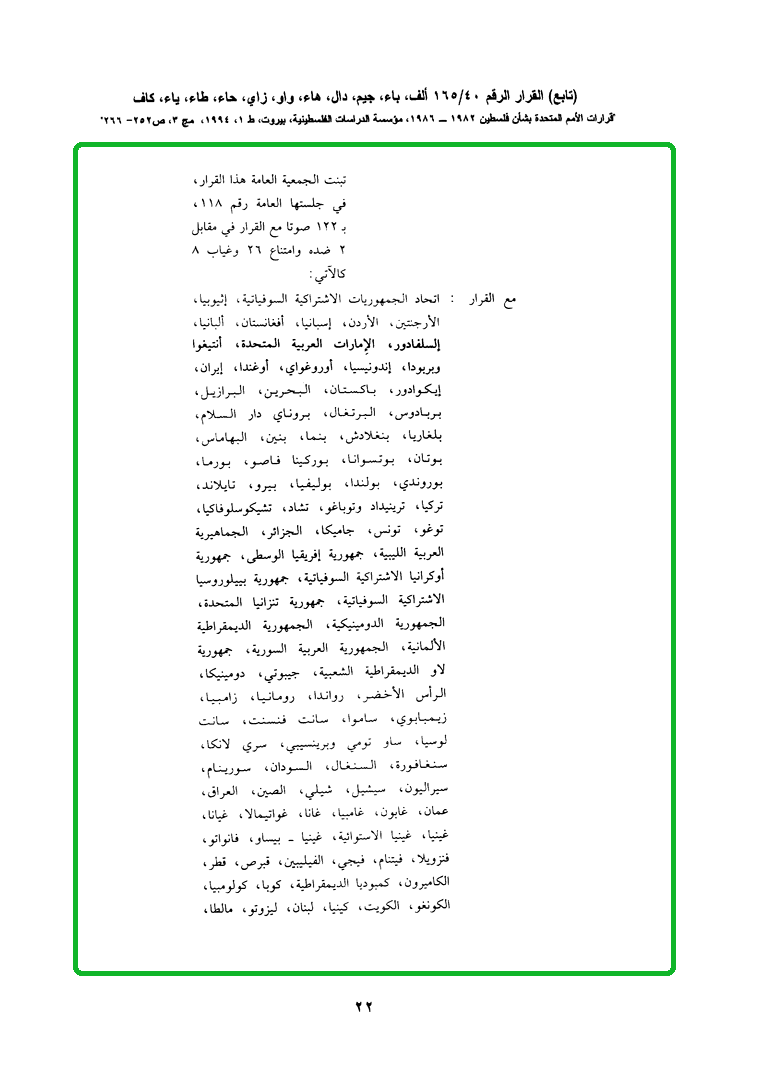 (تابع) القرار الرقم ١٦٥/٤٠ ألف، باء، جيم، دال، هاء، واو، زاي، حاء، طاء، ياء، كاف
"قرارات الأمم المتحدة بشأن فلسطين ١٩٨٢ ــ ١٩٨٦، مؤسسة الدراسات الفلسطينية، بيروت، ط ١، ١٩٩٤، مج ٣، ص٢٥٢- ٢٦٦"
تبنت الجمعية العامة هذا القرار،
في جلستها العامة رقم ١١٨،
بـ ١٢٢ صوتا مع القرار في مقابل
٢ ضده وامتناع ٢٦ وغياب ٨
كالآتي:
مع القرار : اتحاد الجمهوريات الاشتراكية السوفياتية، إثيوبيا،
الأرجنتين، الأردن، إسبانيا، أفغانستان، ألبانيا،
إلسلفادور، الإمارات العربية المتحدة، أنتيغوا
وبربودا، إندونيسيا، أوروغواي، أوغندا، إيران،
إيكوادور، باكستان، البحرين، البرازيل،
بربادوس، البرتغال، بروناي دار السلام،
بلغاريا، بنغلادش، بنما، بنين، البهاماس،
بوتان، بوتسوانا، بوركينا فاصو، بورما،
بوروندي، بولندا، بوليفيا، بيرو، تايلاند،
تركيا، ترينيداد وتوباغو، تشاد، تشيكوسلوفاكيا،
توغو، تونس، جاميكا، الجزائر، الجماهيرية
العربية الليبية، جمهورية إفريقيا الوسطى، جمهورية
أوكرانيا الاشتراكية السوفياتية، جمهورية بييلوروسيا
الاشتراكية السوفياتية، جمهورية تنزانيا المتحدة،
الجمهورية الدومينيكية، الجمهورية الديمقراطية
الألمانية، الجمهورية العربية السورية، جمهورية
لاو الديمقراطية الشعبية، جيبوتي، دومينيكا،
الرأس الأخضر، رواندا، رومانيا، زامبيا،
زيمبابوي، ساموا، سانت فنسنت، سانت
لوسيا، ساو تومي وبرينسيبي، سري لانكا،
سنغافورة، السنغال، السودان، سورينام،
سيراليون، سيشيل، شيلي، الصين، العراق،
عمان، غابون، غامبيا، غانا، غواتيمالا، غيانا،
غينيا، غينيا الاستوائية، غينيا ـ بيساو، فانواتو،
فنزويلا، فيتنام، فيجي، الفيليبين، قبرص، قطر،
الكاميرون، كمبوديا الديمقراطية، كوبا، كولومبيا،
الكونغو، الكويت، كينيا، لبنان، ليزوتو، مالطا،
٢٢